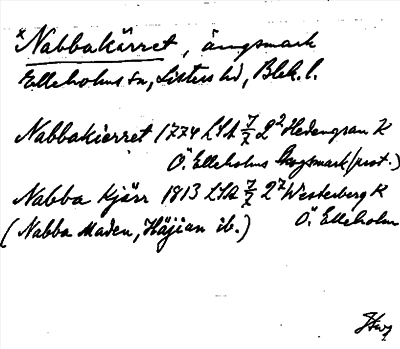 *Nabbakärret, ängsmark
Elleholms sn, Listers hd, Blek. l.
Nabbakierret 1774 LSA 7/7 2² Hedengran K
Ö. Elleholms Skogsmark (prot.)
Nabba Kjärr 1813 LSA 7/7 2⁷ Westerberg K
Ö. Elleholm
(Nabba Maden, Häjian ib.)